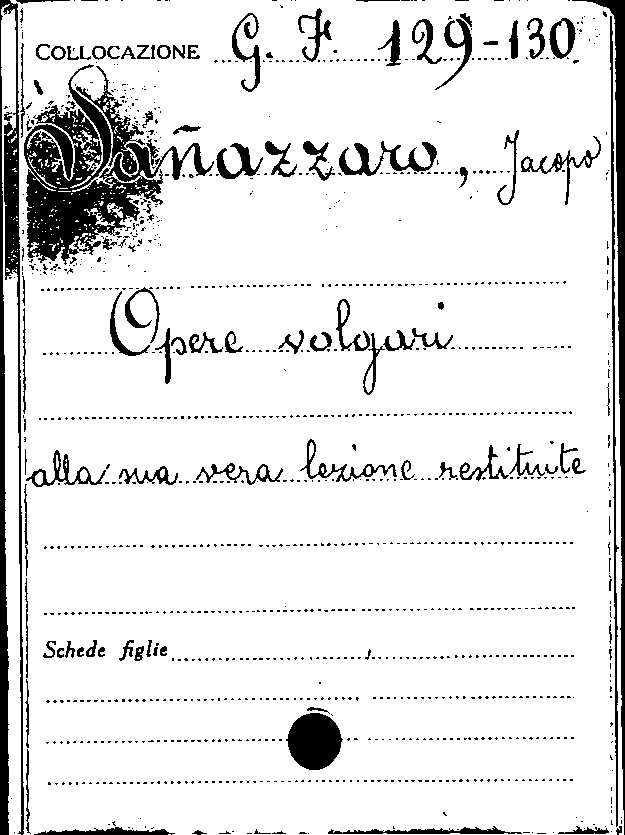 COLLOCAZIONE G. F. 129-130
Sañazzaro, Jacopo
Opere volgari
alla sua vera lezione restituite
Schede figlie